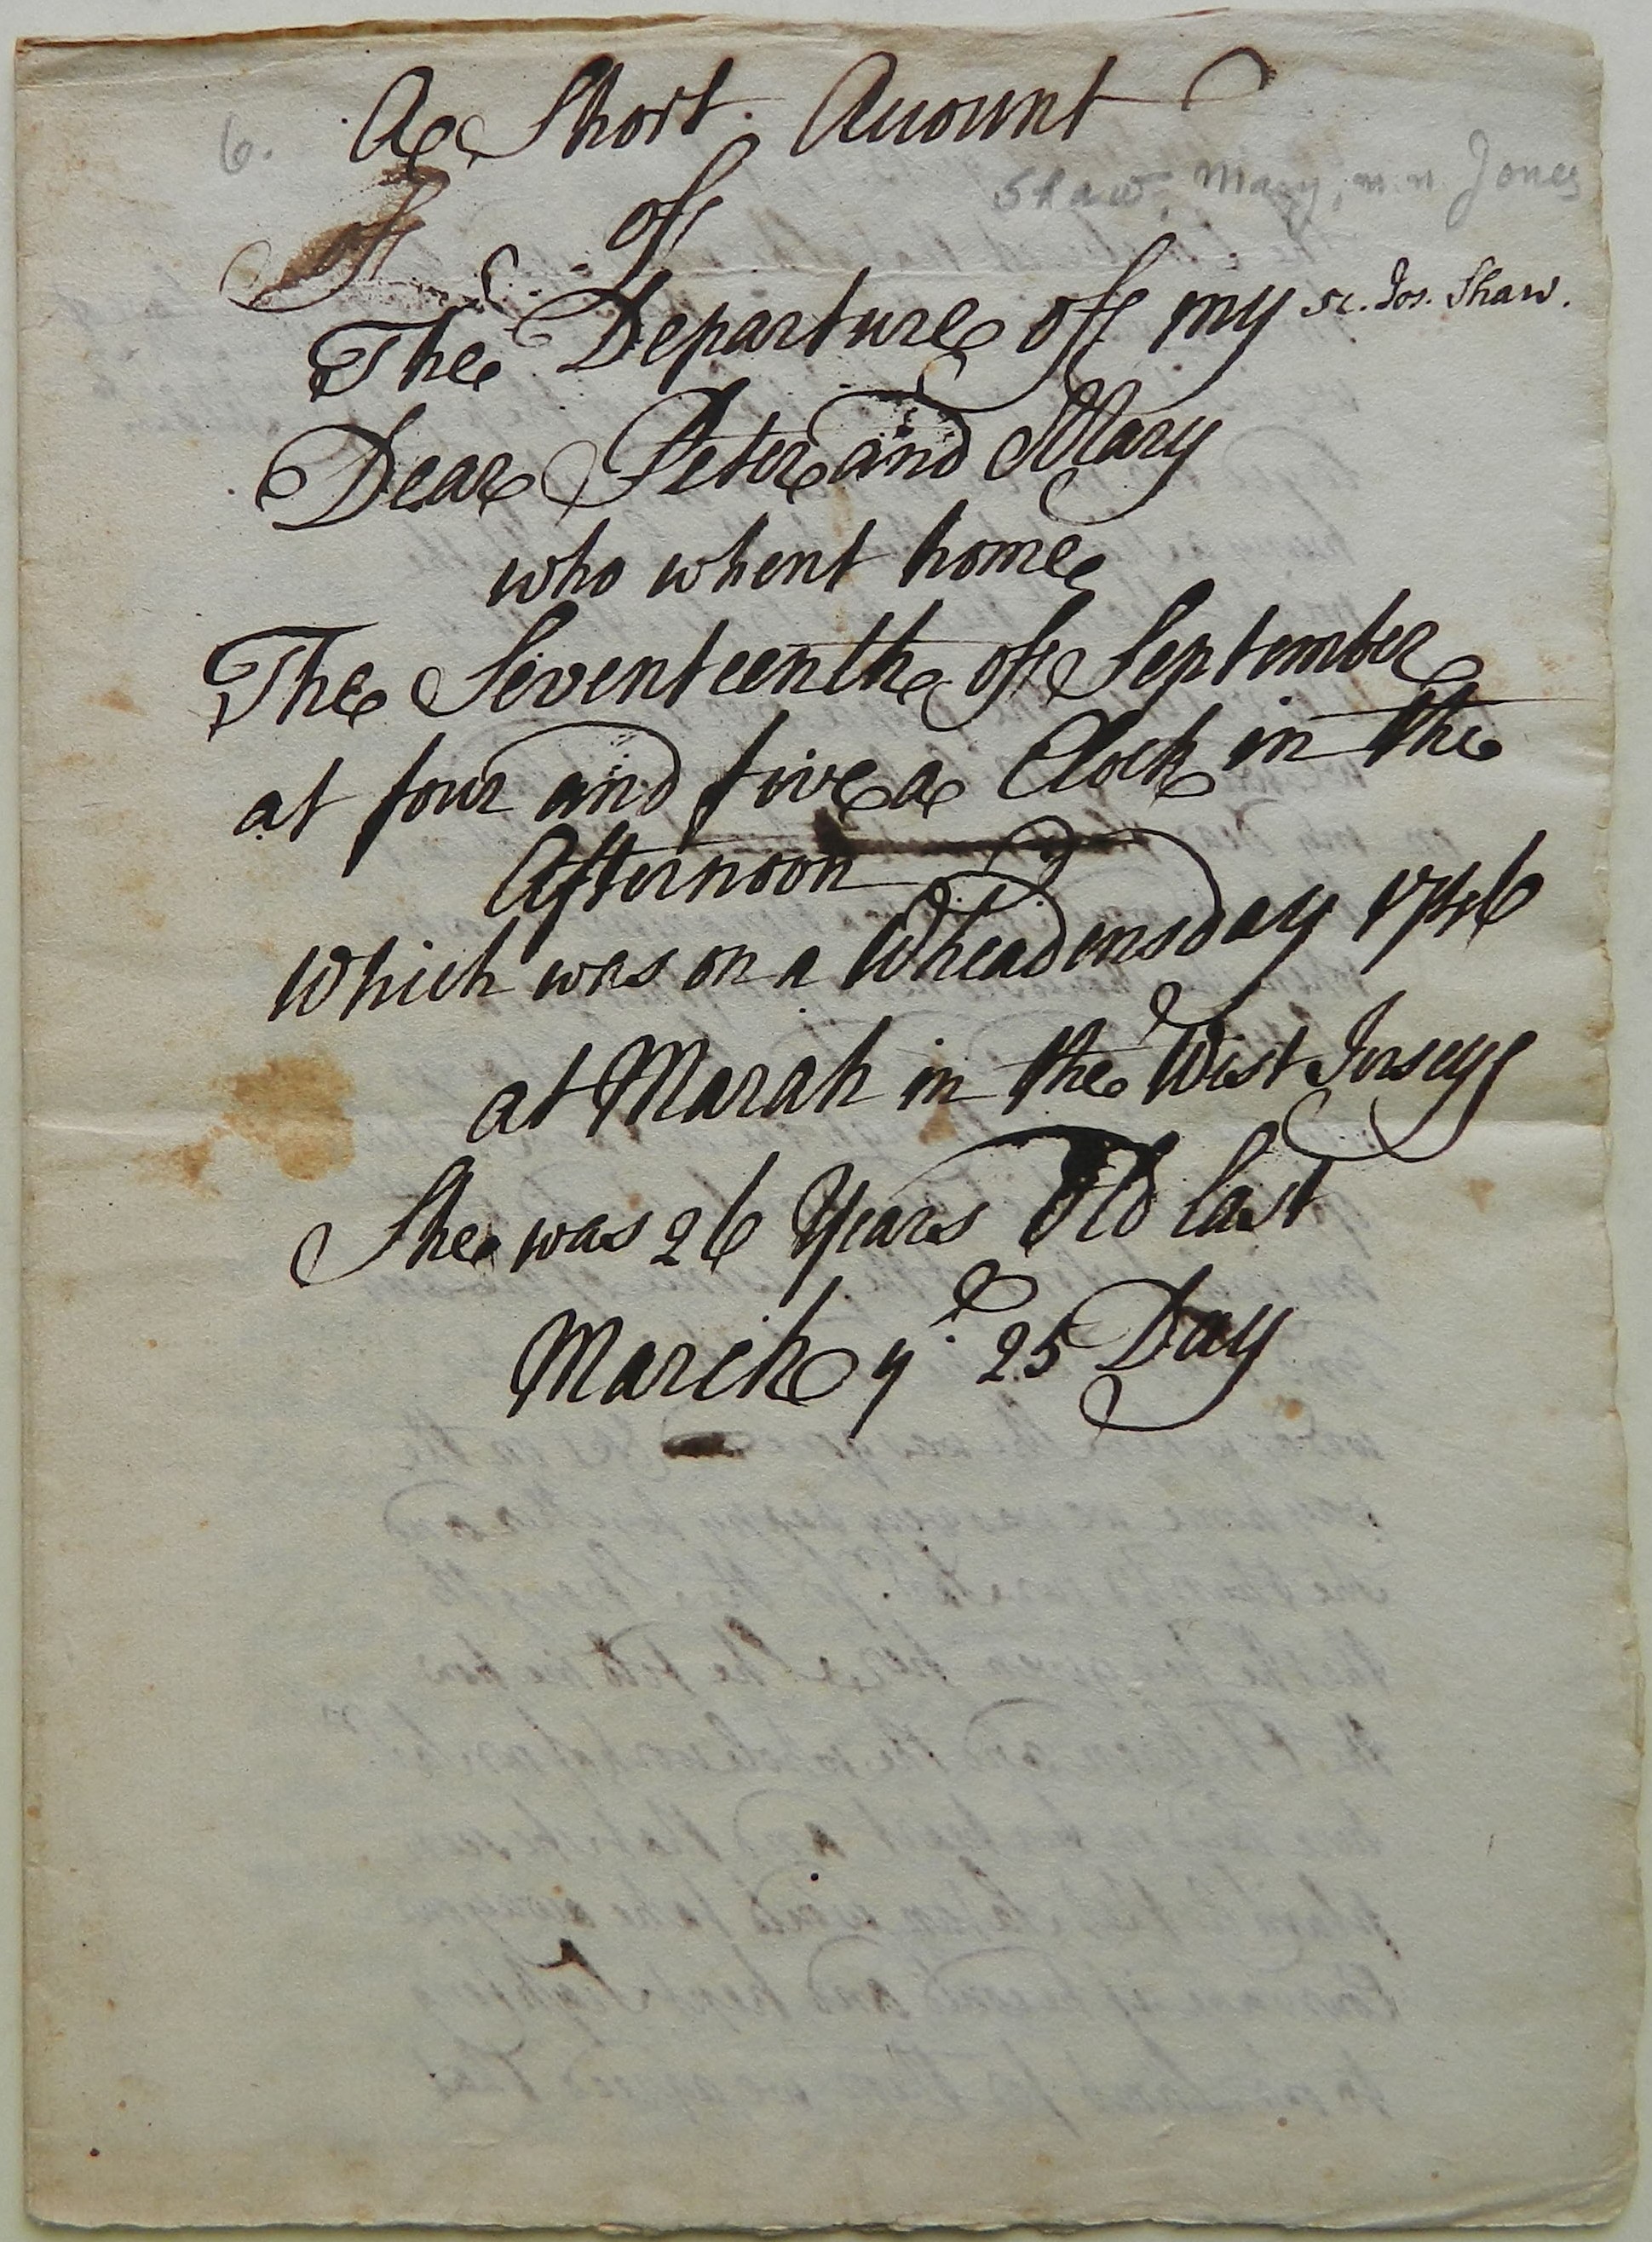 A Short Account
6.
Shaw, Mary, m.n. Jones
of
The Departure of my sc. Jos. Shaw.
Dear Peter and Mary
who whent home
The Seventeenth of September
at four and five a Clock in the
Afternoon
which was on a Wheadensday 1746
at Marah in the West Jersey
She was 26 Years Old last
March ye 25 Day